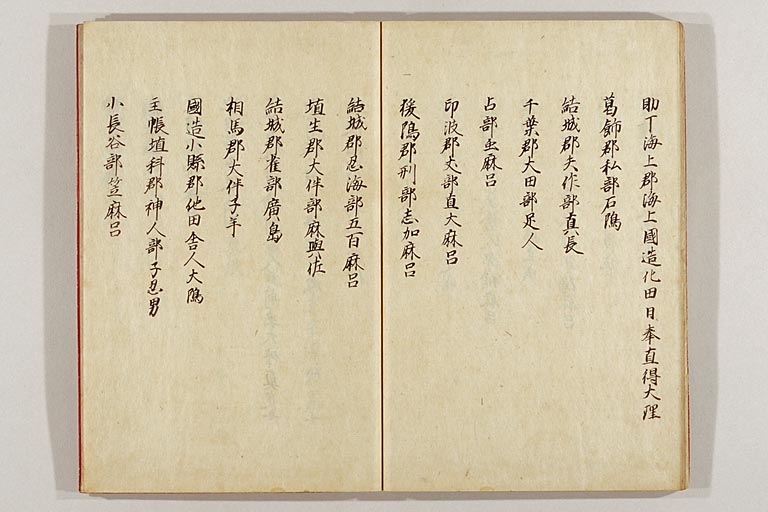 助丁海上郡海上國造他田日奉直得大理
葛飾郡私部石隝
結城郡矢作部真長
千葉郡大田部足人
占部虫麻呂
印波郡丈部直大麻呂
猨隝郡刑部志加麻呂
結城郡忍海部五百麻呂
埴生郡大伴部麻與佐
結城郡雀部廣島
相馬郡大伴子羊
國造小縣郡他田舎人大隝
主帳埴科郡神人部子忍男
小長谷部笠麻呂